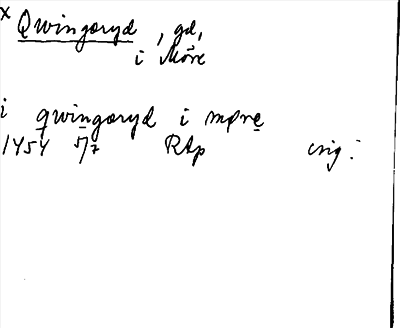 x Qwingoryd, gd,
i Möre
i qwingoryd i møræ
1454 5/7 RAp orig: